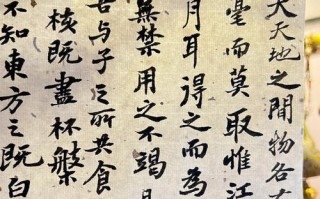 夫天地之間物各有
毫而莫取惟江
月耳得之而為
無禁用之不竭是
吾与子之所共食
核既盡杯槃
不知東方之既白